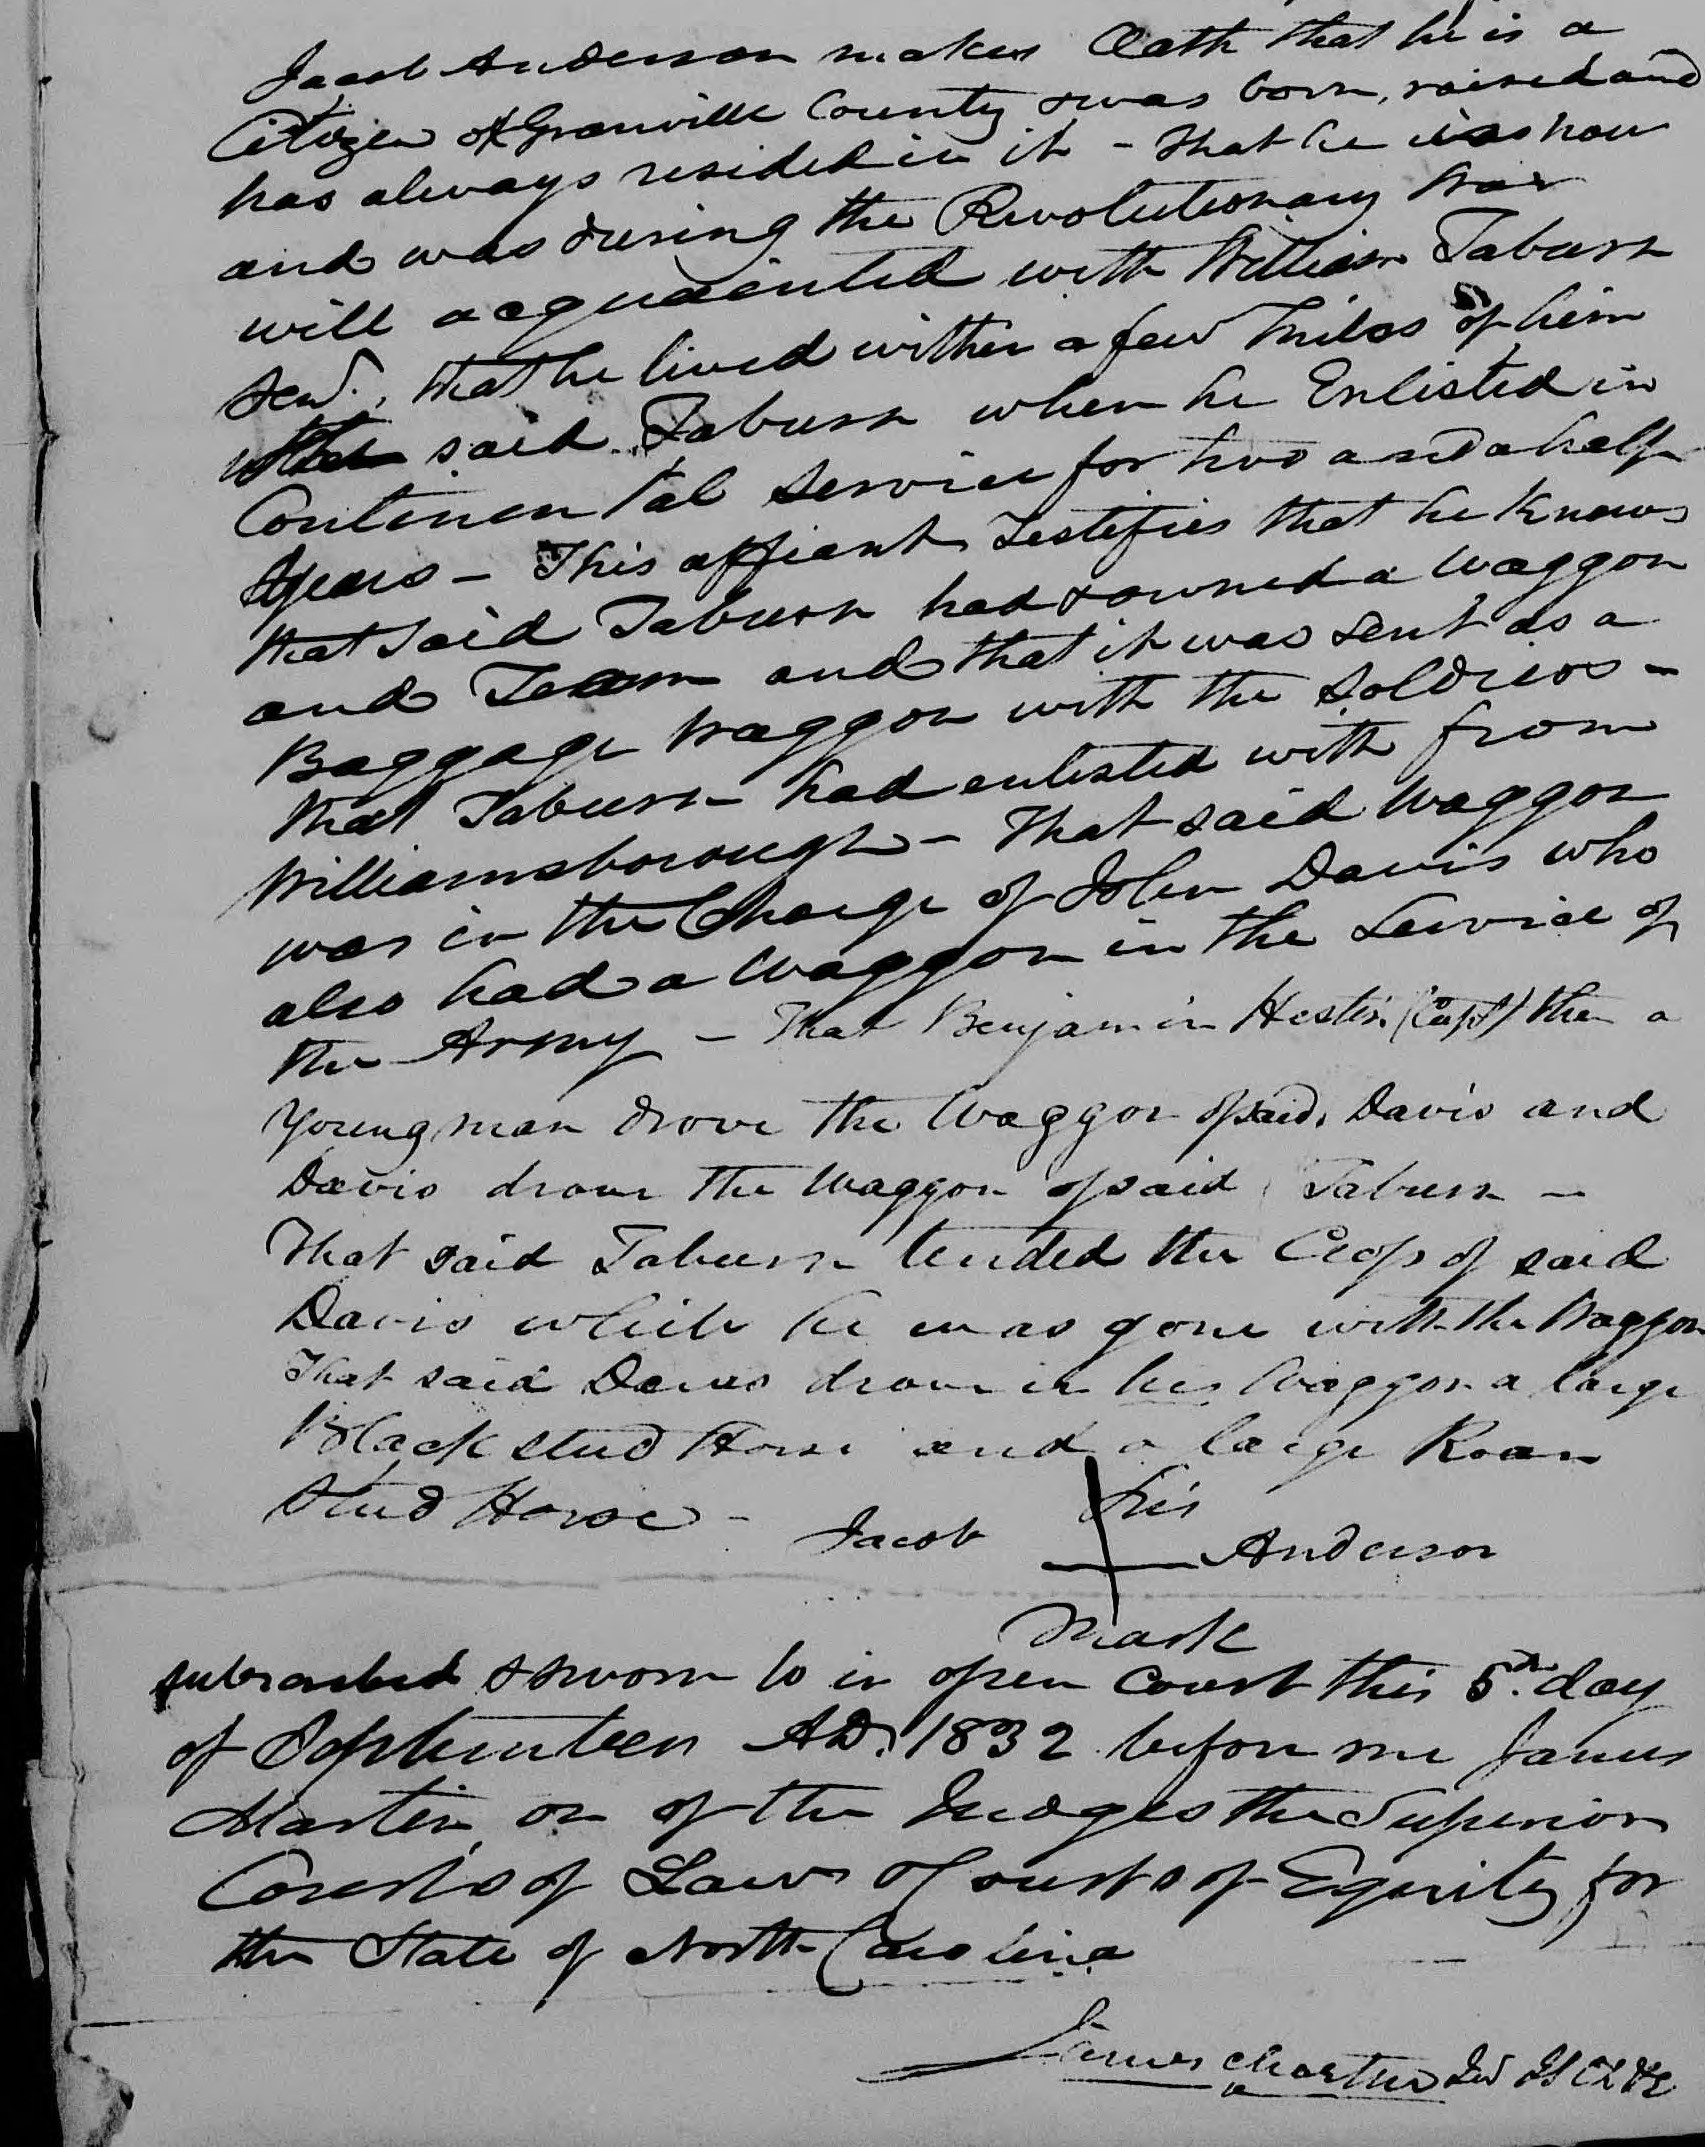 Jacob Anderson makes Oath that he is a
Citizen of Granville County & was born, raised and
has always resided in it - that he is now
and was during the Revolutionary War
will acquainted with William Taburn
Senr., that he lived within a few miles of him
said Taburn when he Enlisted in
Continental Service for two and a half
years - This affiant Testifies that he knows
that said Taburn had & owned a Waggon
and Team and that it was sent as a
Baggage Waggon with the Soldiers -
that Taburn had enlisted with from
Williamsborough - That said Waggon
was in the Charge of John Davis who
also had a Waggon in the Service of
the Army - That Benjamin Hester (Capt) then a
young man drove the Waggon of said Davis and
Davis drove the Waggon of said Taburn -
That said Taburn tended the Crop of said
Davis while he was gone with the Waggon
That said Davis drove in his Waggon a large
Black stud Horse and a large Roan
Stud Horse -
his
Jacob + Anderson
mark
subscribed & sworn to in open Court this 5th. day
of September AD. 1832 before me James
Martin on of the Judges the Superior
Courts of Law & Courts of Equity for
the State of North Carolina
James Martin